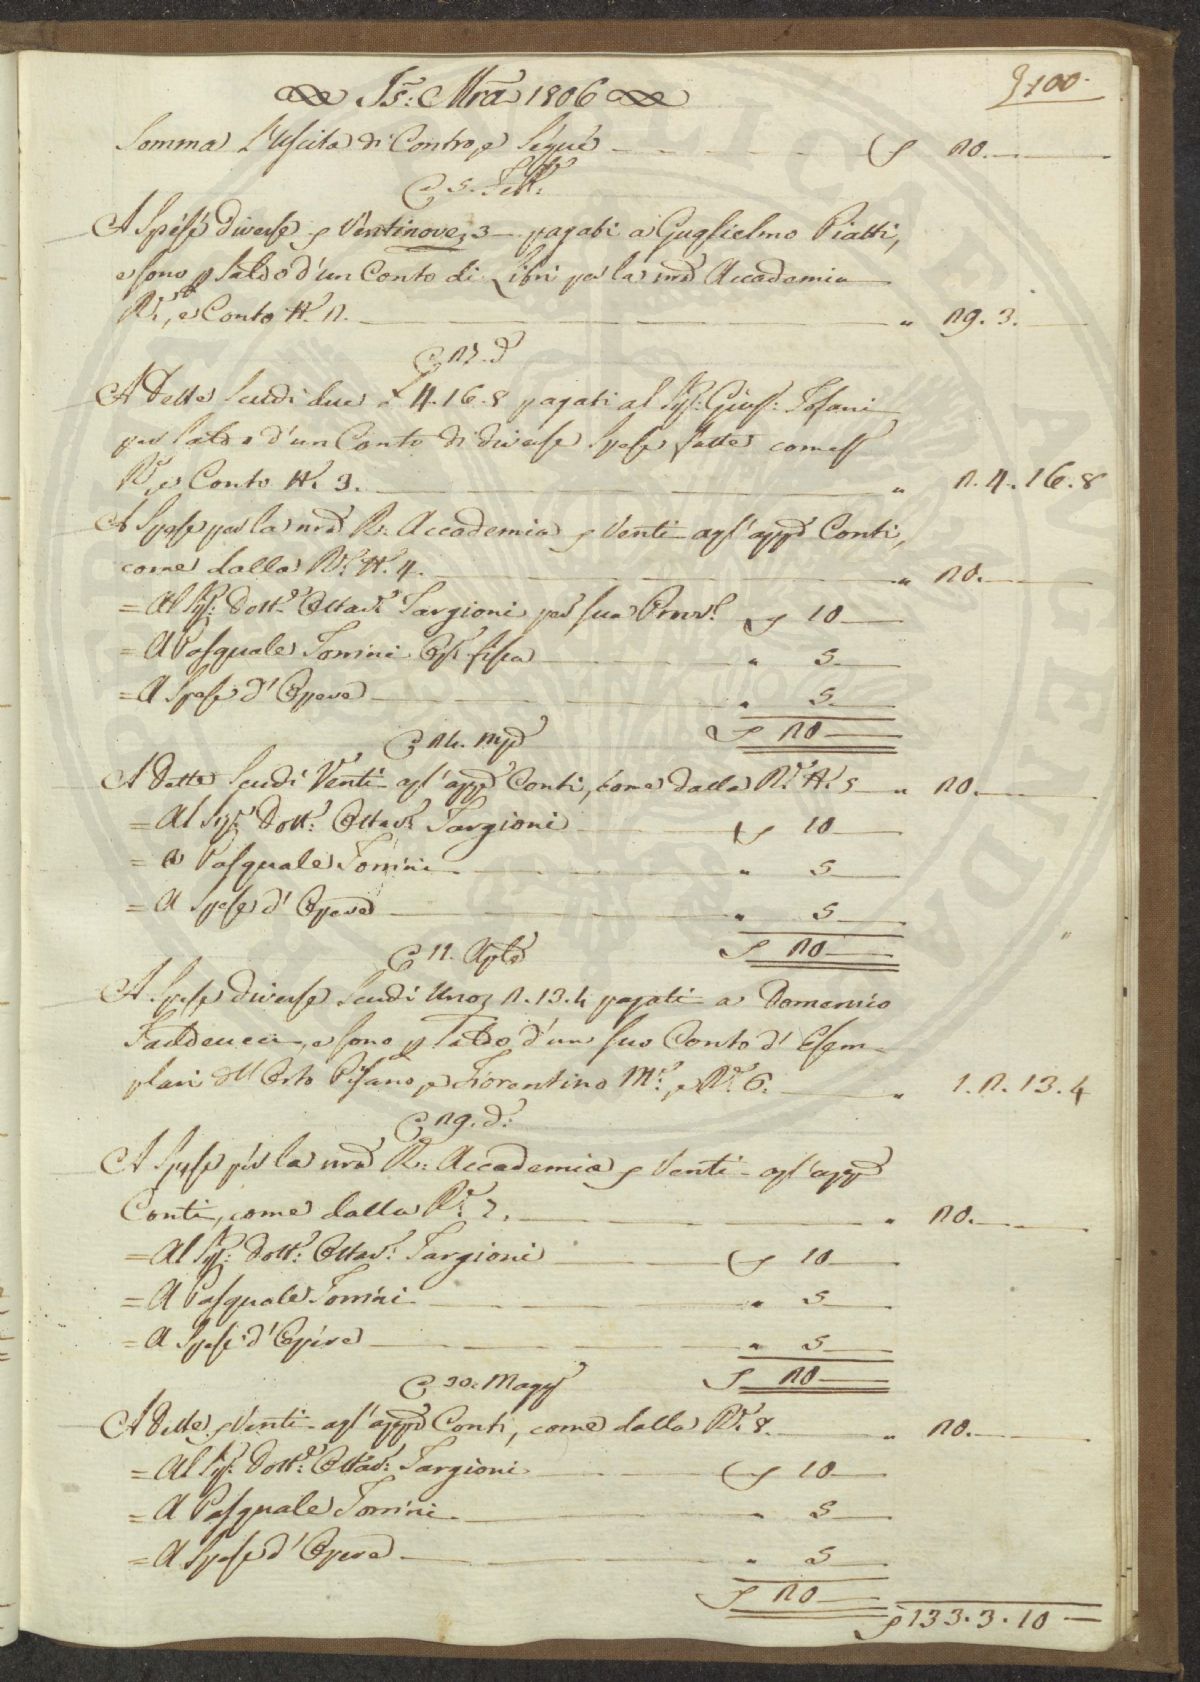 Js: Mrã 1806
100
Somma l'Uscita di Contro, e Segue ƒ 20.
E 5. Febb.º
A Spese diverse ƒ Ventinove, 3 pagati a Guglielmo Piatti,
e sono p Saldo d'un Conto di Libri per la nrã Accademia
R.ª, e Conto N. 2. " 29. 3.
E 27. dº
A Dette Scudi due £ 4.16.8 pagati al Sig.ʳ Gius.ᵉ Tofani
per Saldo d'un Conto di diverse Spese fatte come p
R.ª e Conto N. 3. " 2. 4. 16. 8
A Spese per la nrã R. Accademia ƒ Venti agl'appº Conti,
come dalla R.ª N. 4. " 20.
= Al Sig.ʳ Dott.ʳ Ottav.º Targioni per sua Provv.ᵉ ƒ 10
= A Pasquale Tomini Op.ª fissa " 5
= A Spese d'Opere " 5
ƒ 20
E 24. Mzº
A Dette Scudi Venti agl'appº Conti, come dalla R.ª N. 5 " 20.
= Al Sig.ʳ Dott.ʳ Ottav.º Targioni ƒ 10
= A Pasquale Tomini " 5
= A Spese d'Opere " 5
ƒ 20
E 11. Aplẽ
A Spese diverse Scudi Uno, 2. 13. 4 pagati a Domenico
Falducci, e sono p Saldo d'un suo Conto d'Esem-
plari dell'Orto Pisano, e Fiorentino M.º, e R.ª 6. " 1. 2. 13. 4
E 29. dº
A Spese per la nrã R. Accademia ƒ Venti agl'appº
Conti, come dalla R.ª 7. " 20.
= Al Sig.ʳ Dott.ʳ Ottav.º Targioni ƒ 10
= A Pasquale Tomini " 5
= A Spese d'Opere " 5
ƒ 20
E 30. Maggº
A Dette ƒ Venti agl'appº Conti, come dalla R.ª 8. " 20.
= Al Sig.ʳ Dott.ʳ Ottav.º Targioni ƒ 10
= A Pasquale Tomini " 5
= A Spese d'Opere " 5
ƒ 20
ƒ 133. 3. 10